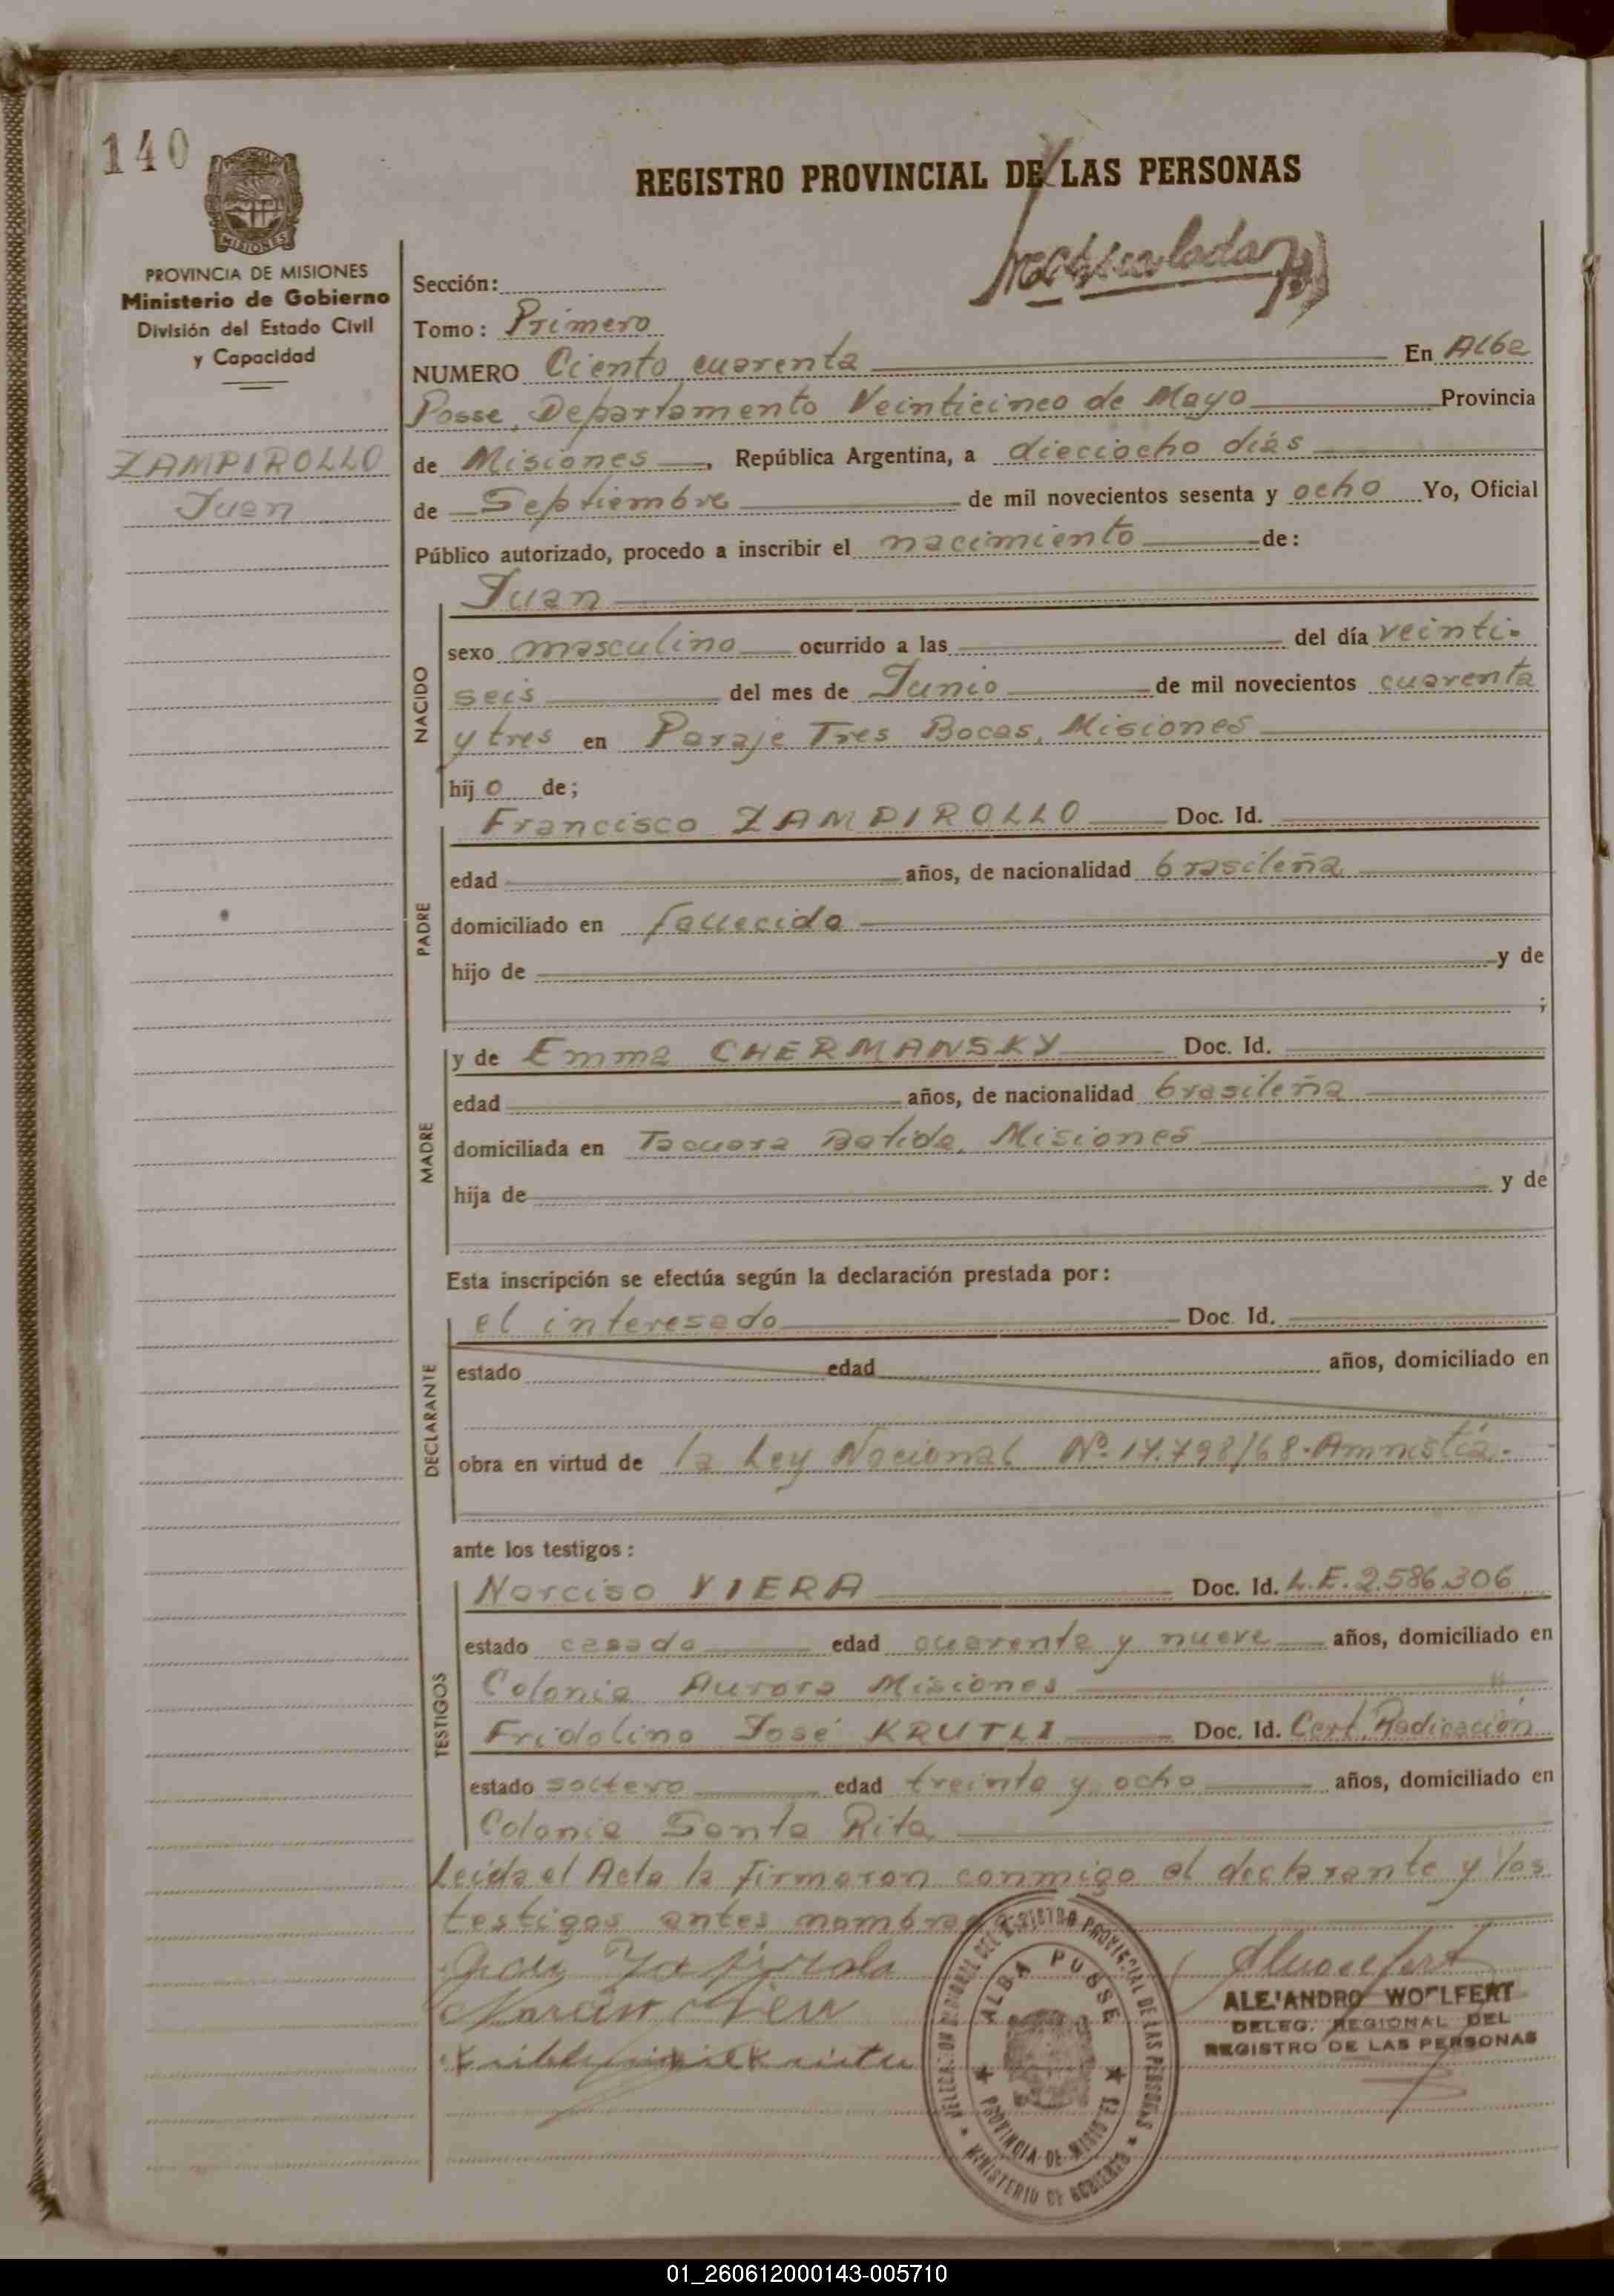 140
MISIONES
PROVINCIA DE MISIONES
Ministerio de Gobierno
División del Estado Civil
y Capacidad
ZAMPIROLLO
Juan
REGISTRO PROVINCIAL DE LAS PERSONAS
Sección:
Tomo: Primero
NUMERO Ciento cuarenta En Alba
Posse, Departamento Veinticinco de Mayo Provincia
de Misiones, República Argentina, a dieciocho días
de Septiembre de mil novecientos sesenta y ocho Yo, Oficial
Público autorizado, procedo a inscribir el nacimiento de:
NACIDO
Juan
sexo masculino ocurrido a las del día veinti-
seis del mes de Junio de mil novecientos cuarenta
y tres en Paraje Tres Bocas, Misiones
hijo de;
PADRE
Francisco ZAMPIROLLO Doc. Id.
edad años, de nacionalidad brasileña
domiciliado en fallecido
hijo de y de
;
MADRE
y de Emma CHERMANSKY Doc. Id.
edad años, de nacionalidad brasileña
domiciliada en Tacuara Batida, Misiones
hija de y de
Esta inscripción se efectúa según la declaración prestada por:
DECLARANTE
el interesado Doc. Id.
estado edad años, domiciliado en
obra en virtud de la Ley Nacional Nº 17.798/68-Amnistía.-
ante los testigos:
TESTIGOS
Narciso VIERA Doc. Id. L.E. 2.586.306
estado casado edad cuarenta y nueve años, domiciliado en
Colonia Aurora Misiones
Fridolino José KRUTLI Doc. Id. Cert. Radicación
estado soltero edad treinta y ocho años, domiciliado en
Colonia Santa Rita
Leída el Acta la firmaron conmigo el declarante y los
testigos antes
ALEJANDRO WOLFERT
DELEG. REGIONAL DEL
REGISTRO DE LAS PERSONAS
ALBA POSSE
PROVINCIA DE MISIONES
MINISTERIO DE GOBIERNO
01_260612000143-005710